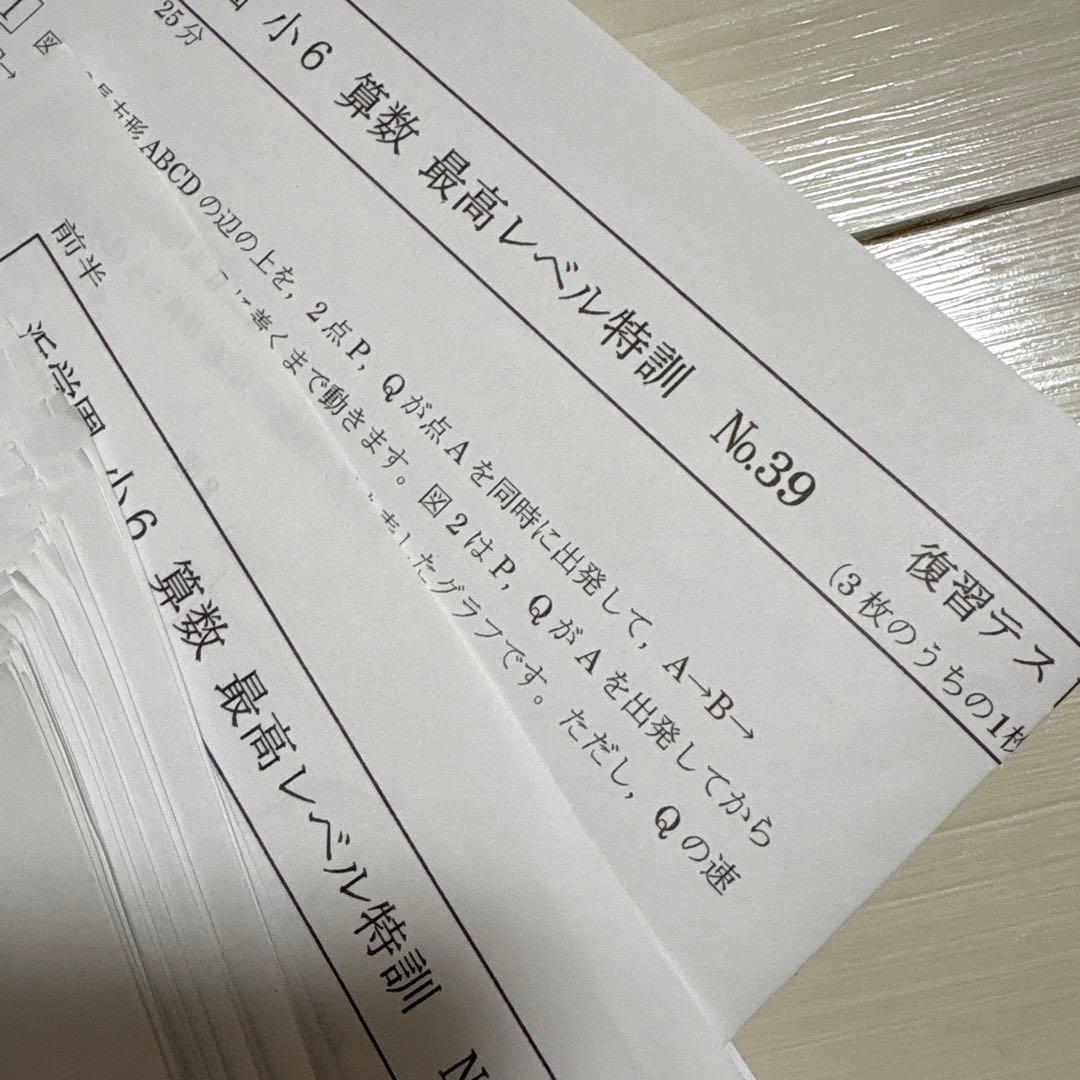 小6 算数 最高レベル特訓 No.39 復習テス
25分
(3枚のうちの1枚
1 図
方形ABCDの辺の上を，2点P，Qが点Aを同時に出発して，A→B→
に着くまで動きます。図2はP，QがAを出発してから
したグラフです。ただし，Qの速
前半
学園 小6 算数 最高レベル特訓 N